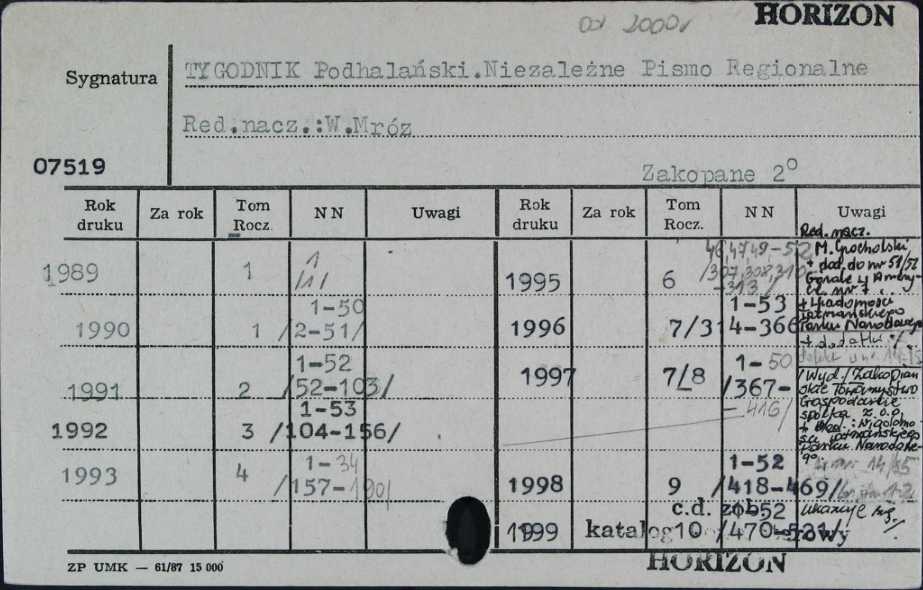 od 2000r
HORIZON
Sygnatura
TYGODNIK Podhalański.Niezależne Pismo Regionalne
Red.nacz.:W.Mróz
07519
Zakopane 2°
Rok druku Za rok Tom Rocz. NN Uwagi Rok druku Za rok Tom Rocz. NN Uwagi
Red. nacz.
M. Grocholski
+ dod. do nr 51/52
1989 1 1 /1/
1995 6 46,47,49-52 /307,308,310-313/
1990 1 1-50 /2-51/
1996 7 1-53 /314-366
+ Wiadomości Tatrzańskiego Parku Narodowego
+ dodatki
1991 2 1-52 /52-103/
1997 7/8 1-50 /367-416/
/Wyd./ Zakopiańskie Towarzystwo Gospodarcze spółka z.o.o.
1992 3 1-53 /104-156/
1993 4 1-34 /157-190/
1998 9 1-52 /418-469/
1999 10 52 /470-521/
ukazuje się
c.d. zob.
katalog
ZP UMK — 61/87 15 000
HORIZON